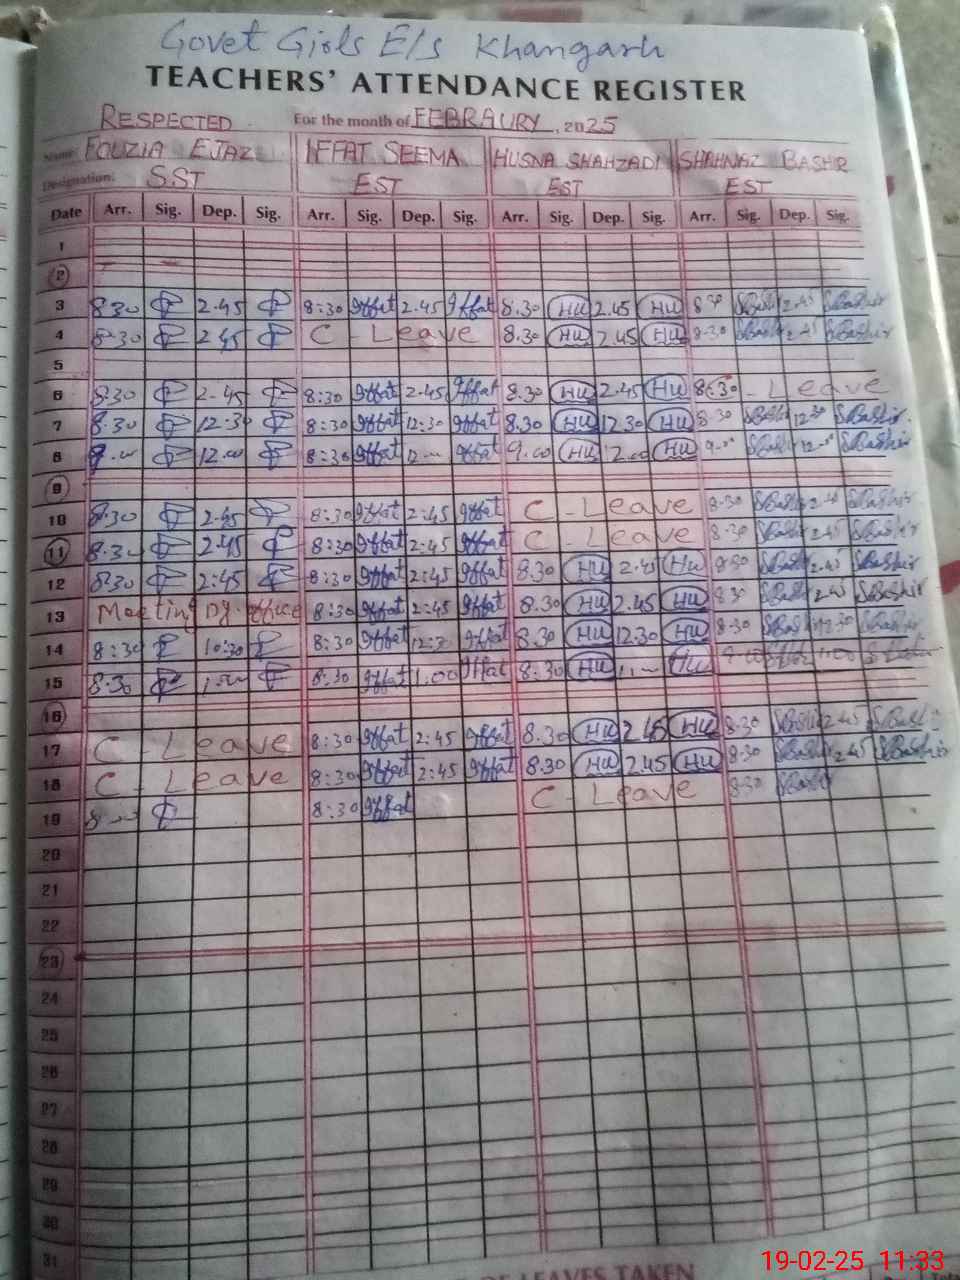 Govet Girls E/S Khangarh
TEACHERS' ATTENDANCE REGISTER
RESPECTED For the month of FEBRAURY, 2025
Name: FOUZIA EJAZ IFFAT SEEMA HUSNA SHAHZADI SHAHNAZ BASHIR
Designation: SST EST EST EST
Date Arr. Sig. Dep. Sig. Arr. Sig. Dep. Sig. Arr. Sig. Dep. Sig. Arr. Sig. Dep. Sig.
1
2
3 8.30 2.45 8:30 Iffat 2.45 Iffat 8.30 Hu 2.45 Hu 8.30 SBashir 2.45 SBashir
4 8.30 2.45 C - Leave 8.30 Hu 2.45 Hu 8.30 SBashir 2.45 SBashir
5
6 8.30 2.45 8:30 Iffat 2.45 Iffat 8.30 Hu 2.45 Hu 8:30 - Leave
7 8.30 12:30 8:30 Iffat 12:30 Iffat 8.30 Hu 12.30 Hu 8.30 SBashir 12.30 SBashir
8 9.00 12.00 8:30 Iffat 12.00 Iffat 9.00 Hu 12.00 Hu 9.00 SBashir 12.00 SBashir
9
10 8.30 2.45 8:30 Iffat 2:45 Iffat C - Leave 8.30 SBashir 2.45 SBashir
11 8.30 2.45 8:30 Iffat 2:45 Iffat C - Leave 8.30 SBashir 2.45 SBashir
12 8.30 2:45 8:30 Iffat 2:45 Iffat 8.30 Hu 2.45 Hu 8.30 SBashir 2.45 SBashir
13 Meeting Dy. office 8:30 Iffat 2:45 Iffat 8.30 Hu 2.45 Hu 8.30 SBashir 2.45 SBashir
14 8:30 10:30 8:30 Iffat 12:30 Iffat 8.30 Hu 12.30 Hu 8.30 SBashir 12.30 SBashir
15 8.30 1.00 8:30 Iffat 1.00 Iffat 8.30 Hu 1.00 Hu 9.00 SBashir 1.00 SBashir
16
17 C - Leave 8:30 Iffat 2:45 Iffat 8.30 Hu 2.45 Hu 8.30 SBashir 2.45 SBashir
18 C - Leave 8:30 Iffat 2:45 Iffat 8.30 Hu 2.45 Hu 8.30 SBashir 2.45 SBashir
19 8:30 Iffat C - Leave 8.30 SBashir
20
21
22
23
24
25
26
27
28
29
30
31
LEAVES TAKEN
19-02-25 11:33